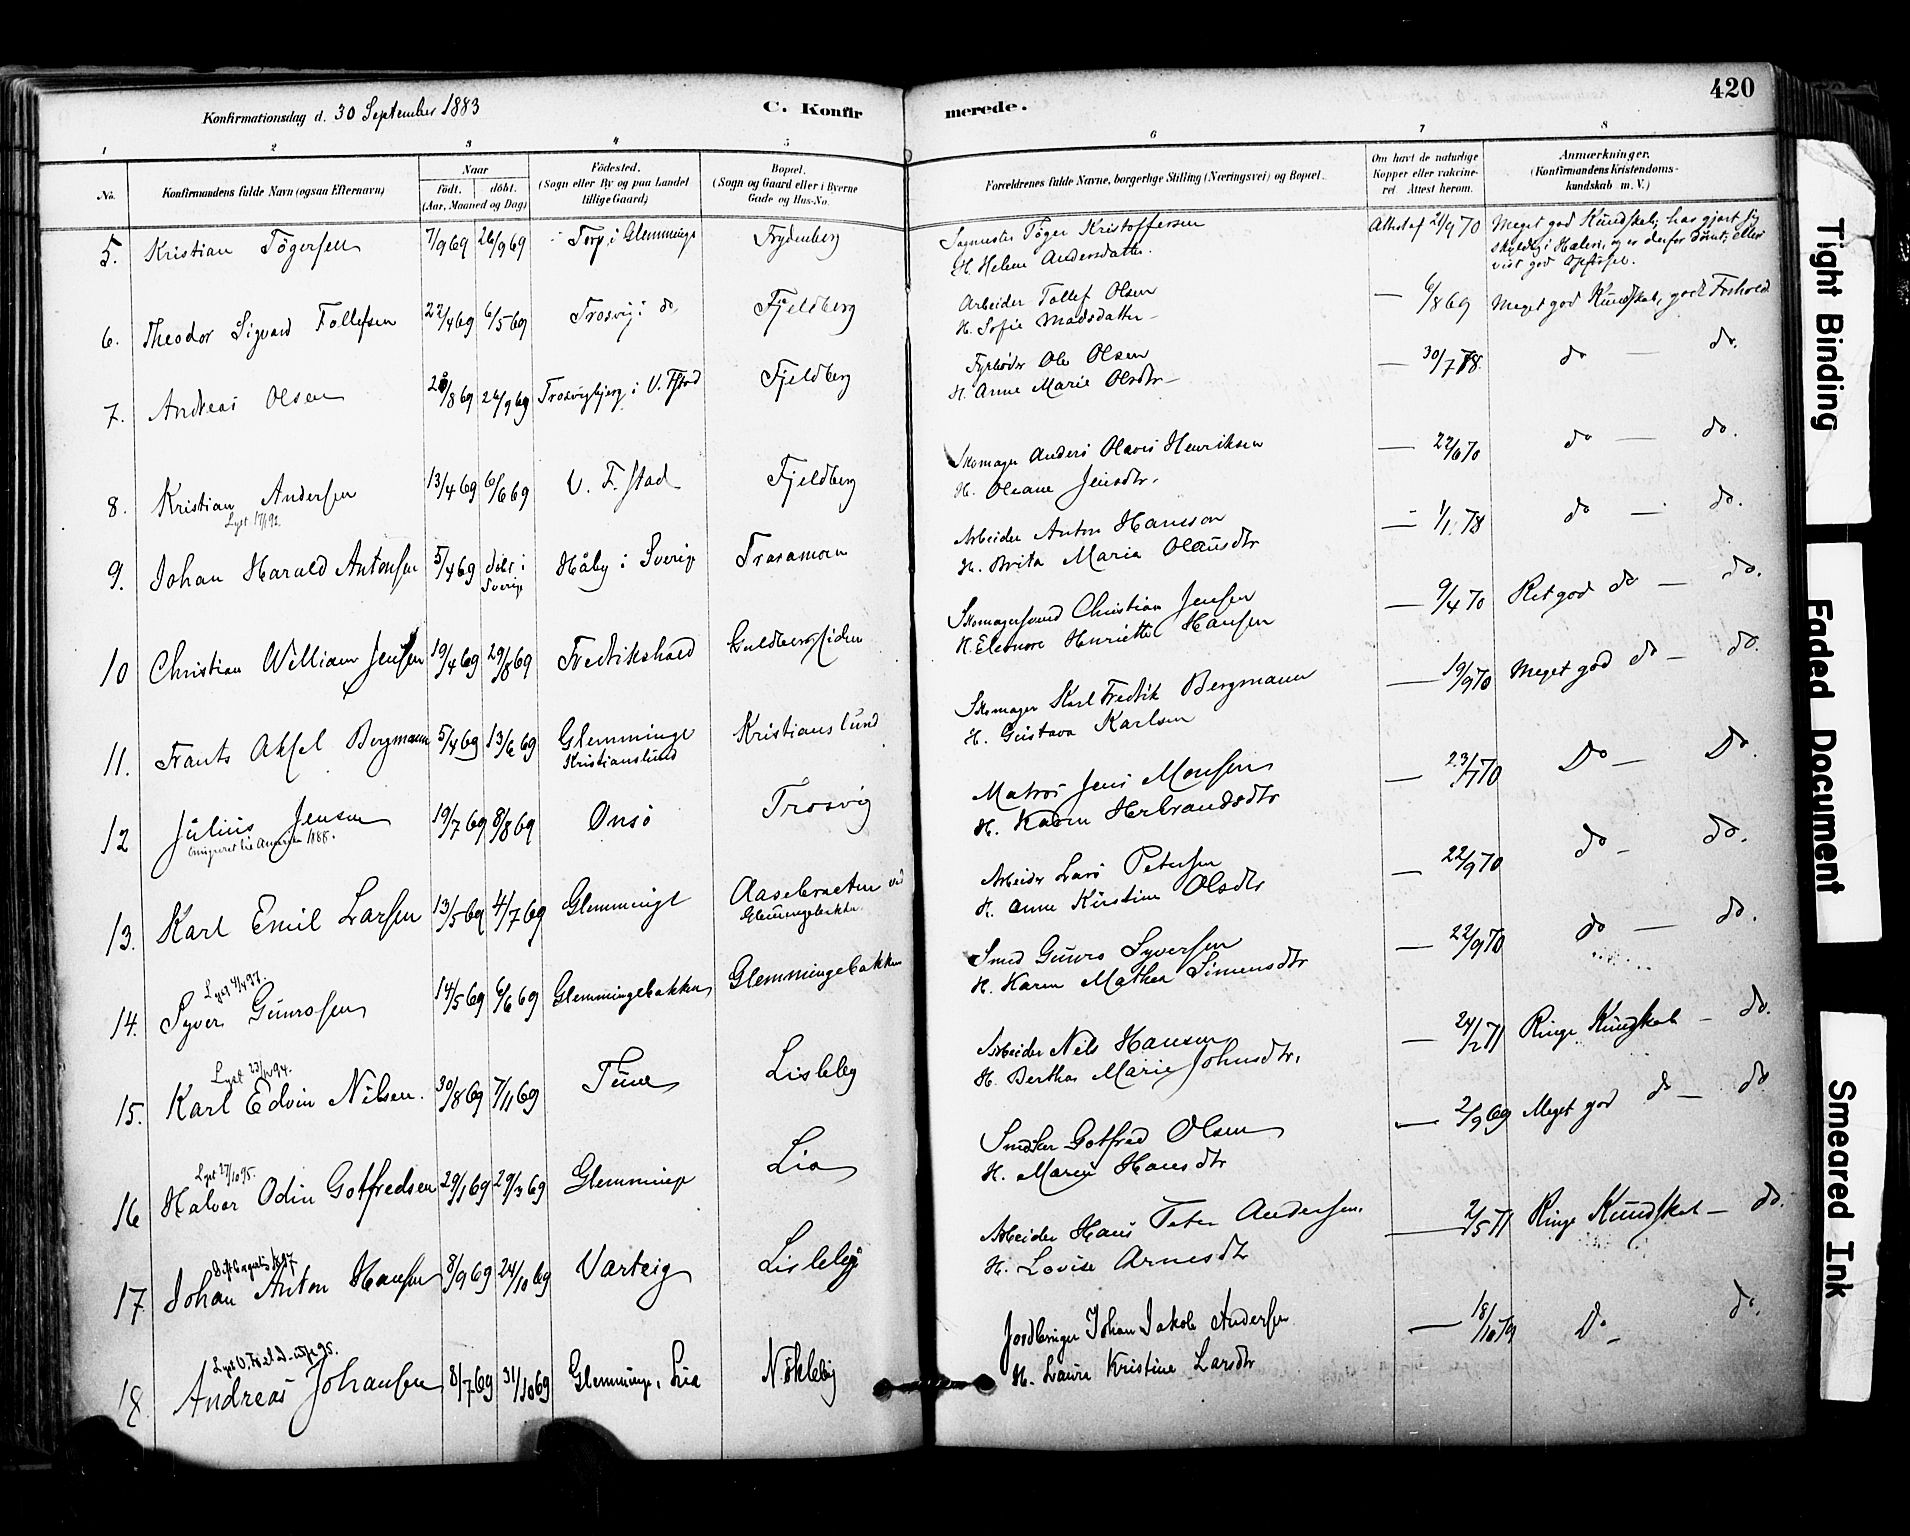 420
Konfirmationsdag d. 30 September 1883
C. Konfir
merede.
1 2 3 4 5 6 7 8
No.
Konfirmandens fulde Navn (ogsaa Efternavn)
Naar
født. døbt.
(Aar, Maaned og Dag)
Fødested.
(Sogn eller By og paa Landet
tillige Gaard)
Bopæl.
(Sogn og Gaard eller i Byerne
Gade og Hus-No.
Forældrenes fulde Navne, borgerlige Stilling (Næringsvei) og Bopæl.
Om havt de naturlige
Kopper eller vakcine-
ret Attest herom.
Anmærkninger.
(Konfirmandens Kristendoms-
kundskab m. V.)
5. Kristian Tögersen 7/9 69 26/9 69 Torp i Glemminge Frydenberg Töger Kristoffersen Attest af 21/9 70 Meget god Kundskab, har gjort sig
H. Helene Andersdatter.
skyldig i Haleri, og er derfor dömt; ellers
vist god Opførsel.
6. Theodor Sigvard Tollefsen 22/4 69 6/5 69 Trosvig i do Fjeldberg Arbeider Tollef Olsen — 6/8 69 Meget god Kundskab, godt Forhold
H. Sofie Madsdatter
7. Andreas Olsen 28/8 69 26/9 69 Trosvigbjerg i V. Fstad Fjeldberg Fyrböder Ole Olsen — 30/7 78. do — do.
H. Anne Marie Olsdtr
8. Kristian Andersen 13/4 69 6/6 69 V. F.stad Fjeldberg Skomager Anders Olavis Henriksen — 22/6 70 do — do.
H. Oleane Jensdtr.
9. Johan Harald Antonsen 5/4 69 döbt i Sverige Håby i Sverige Traramoen Arbeider Anton Hansson — 1/1 78 do — do.
H. Brita Maria Olausdtr
10 Christian William Jensen 19/4 69 29/8 69 Fredrikshald Guldbergssiden Skomagersvend Christian Jensen — 9/4 70 Ret god do — do.
H. Eleonore Henriette Hansen
11. Frants Aksel Bergmann 5/4 69 13/6 69 Glemminge
Kristianslund Kristianslund Skomager Karl Fredrik Bergmann — 19/9 70 Meget god do — do.
H. Gustava Karlsen
12 Julius Jensen 19/7 69 8/8 69 Onsö Trosvig Matros Jens Monsen — 23/7 70 Do — Do.
emigreret til Amerika 1888.
H. Karen Herbrandsdtr
13. Karl Emil Larsen 13/5 69 4/7 69 Glemminge Aasebraeten ved
Glemmingebakke. Arbeider Lars Petersen — 22/9 70 do — do.
H. Anne Kirstine Olsdtr
14. Syver Gunrosen 14/5 69 6/6 69 Glemmingebakken Glemmingebakken Smed Gunro Syversen — 22/9 70 do — do.
H. Karen Mathea Simensdtr
Lyst 23/11 94.
15. Karl Edvin Nilsen. 30/8 69 7/11 69 Tune Lisleby Arbeider Nils Hansen — 24/2 71 Ringe Kundskab — do.
H. Berthe Marie Johnsdtr.
Lyst 27/10 95.
16 Halvor Odin Gotfredsen 29/1 69 29/3 69 Glemminge Lia Gotfred Olsen — 2/9 69 Meget god do — do
H. Maren Hansdtr
17. Johan Anton Hansen 8/9 69 24/10 69 Varteig Lisleby Arbeider Hans Peter Andersen — 2/5 71 Ringe Kundskab — do.
H. Lovise Arnesdtr
18. Andreas Johansen 8/7 69 31/10 69 Glemminge, Lia Nökleby Jordbruger Johan Jakob Andersen — 18/10 79 Do — do.
H. Laura Kristine Larsdtr
Tight Binding
Faded Document
Smeared Ink